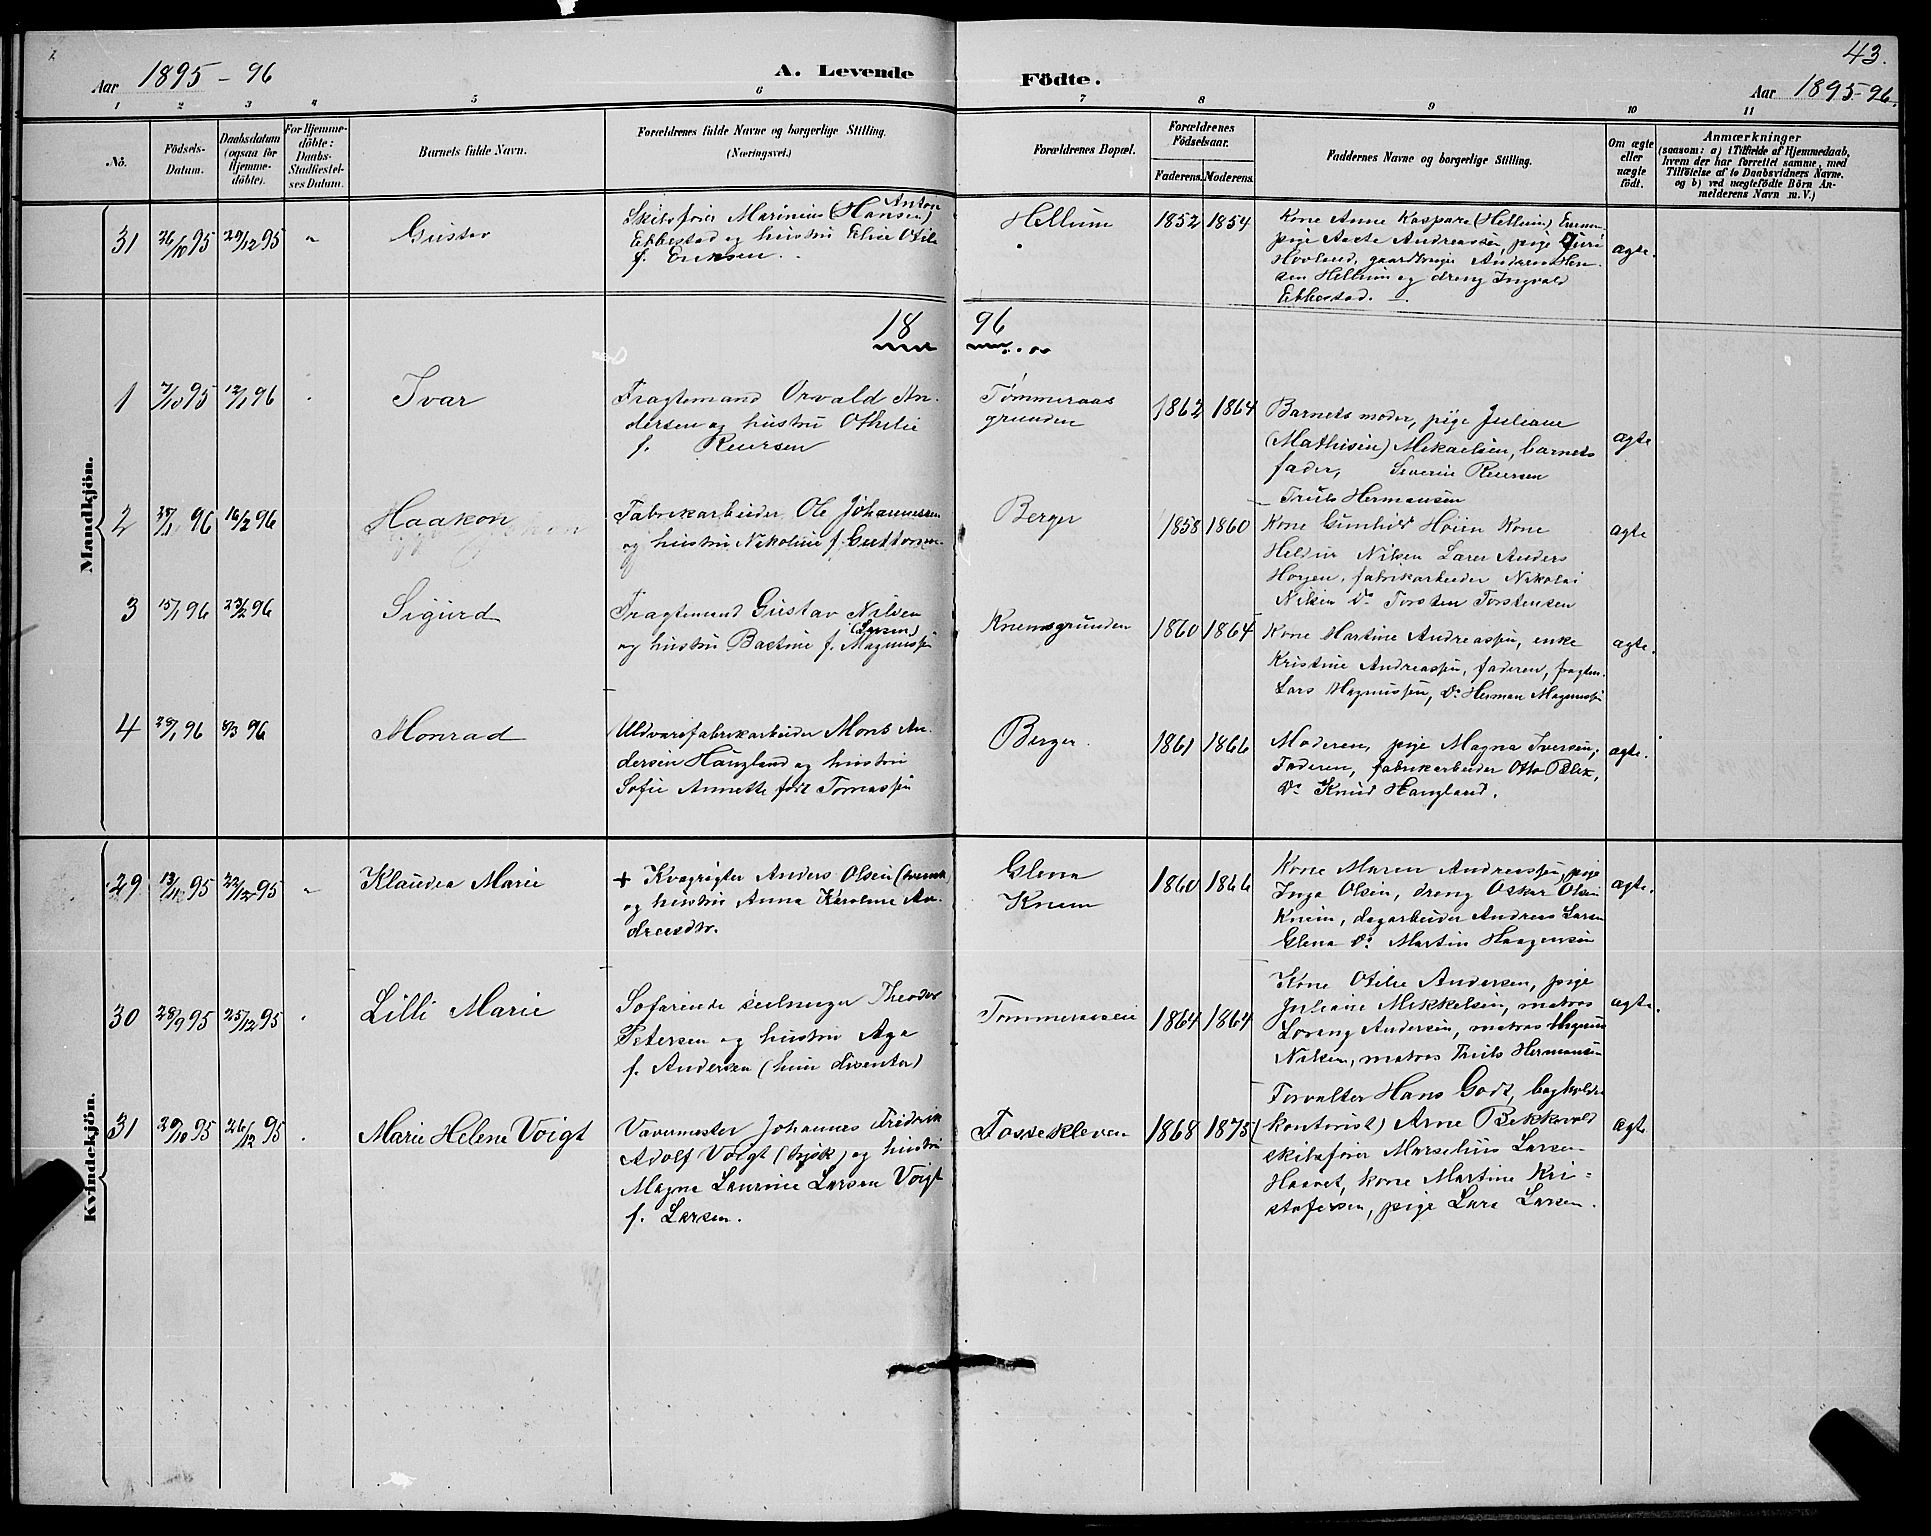 43.
Aar 1895-96 A. Levende Födte. Aar 1895-96.
1 2 3 4 5 6 7 8 9 10 11
No.
Födsels-Datum.
Daabsdatum (ogsaa for Hjemmedöbte).
For Hjemmedöbte: Daabs-Stadfæstelses Datum.
Barnets fulde Navn.
Forældrenes fulde Navne og borgerlige Stilling.
(Næringsvei.)
Forældrenes Bopæl.
Forældrenes Födselsaar.
Faderens. Moderens.
Faddernes Navne og borgerlige Stilling.
Om ægte eller uægte födt.
Anmærkninger
(saasom: a) i Tilfælde af Hjemmedaab,
hvem der har forrettet samme, med
Tilföielse af to Daabsvidners Navne.
og b) ved uægtefödte Börn An-
melderens Navn m. V.)
Mandkjön.
31 26/10 95 29/12 95 " Gustav
Skibsfører Marinius (Hansen) Anton
Ekkestad og hustru Elise Otilie
f. Eriksen.
Hellum 1852 1854
Kone Anne Kaspara (Hellum)
pige Aaste Andreassen, pige Guri
Hovland, gaardbruger Anders Han-
sen Hellum og dreng Ingvald
Ekkestad.
ægte.
18 96
1 7/10 95 12/1 96 Ivar
Fragtemand Orvald An-
dersen og hustru Othilie
f. Reiersen
Tømmeraas
grunden
1862 1864
Barnets moder, pige Juliane
(Mathisen) Mikaelsen, barnets
fader, Severin Reiersen
Truls Hermansen
ægte
2 27/1 96 16/2 96 Haakon
Fabrikarbeider Ole Johannessen
og hustru Nikoline f. Guttormsen
Berger 1858 1860
Kone Gunhild Høien Kone
Heldur Nilsen Lærer Anders
Høyen, fabrikarbeider Nikolai
Nilsen Do Torsten Torstensen
ægte
3 15/1 96 23/2 96 Sigurd
Fragtemand Gustav Nilsen
(Larsen)
og hustru Bastine f. Magnussen
Knemsgrunden 1860 1864
Kone Martine Andreassen, enke
Kristine Andreassen, faderen, fragtem.
Lars Magnussen, Do Herman Magnussen
ægte.
4 29/1 96 8/3 96 Monrad
Uldvarefabrikarbeider Mons An-
dersen Haugland og hustru
Sofie Annette født Tomassen
Berger. 1861 1866
Moderen, pige Magna Iversen,
Faderen, fabrikarbeider Otto Blix,
Do Knud Haugland.
ægte.
Kvindekjön.
29 13/11 95 22/12 95 " Klaudea Marie
+ Kvægrøgter Anders Olsen (svensk)
og hustru Anna Karoline An-
dreasdtr.
Glena
Knem
1860 1866
Kone Maren Andreassen, pige
Inga Olsen, dreng Oskar Olsen
Knem, dagarbeider Andreas Larsen
Glena Do Martin Haagensen
ægte.
30 28/9 95 25/12 95 Lilli Marie
Søfarende Theodor
Petersen og hustru Aga
f. Andersen (hun disenter)
Tømmeraasen 1864 1864
Kone Otilie Andersen, pige
Juliane Mikkelsen, matros
Lorang Andersen, matros Magnus
Nilsen, matros Truls Hermansen
ægte.
31 29/10 95 26/12 95 Marie Helene Voigt
Vævermester Johannes Fredrik
Adolf Voigt (tysk) og hustru
Magna Laurine Larsen Voigt
f. Larsen.
Fossekleven 1868 1875
Forvalter Hans Godt, bogholder
(kontorist) Arne Bekkevold
skibsfører Marselius Larsen
Haavet, kone Martine Kri-
stofersen, pige Lara Larsen.
ægte